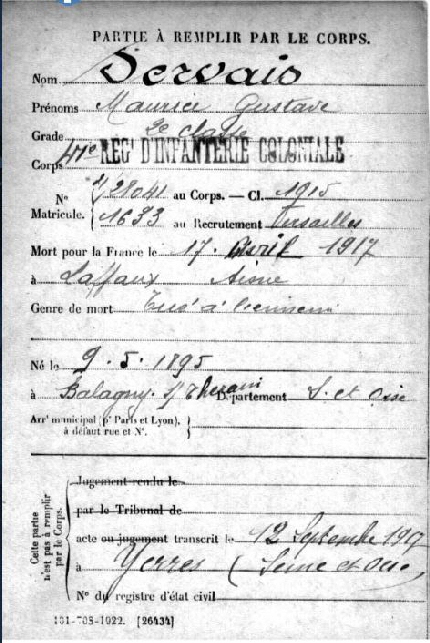 PARTIE À REMPLIR PAR LE CORPS.
Nom Servais
Prénoms Maurice Gustave
Grade 2e classe
Corps 41e RÉG' D'INFANTERIE COLONIALE
N° 1/28041 au Corps. — Cl. 1915
Matricule. 1633 au Recrutement Versailles
Mort pour la France le 17. Avril 1917
à Laffaux Aisne
Genre de mort Tué à l'ennemi
Né le 9. 5. 1895
à Balagny s/ Thérain Département S. et Oise
Arrt municipal (pr Paris et Lyon), à défaut rue et N°.
Cette partie n'est pas à remplir par le Corps.
Jugement rendu le
par le Tribunal de
acte ou jugement transcrit le 12 Septembre 1917
à Yerres (Seine et Oise)
N° du registre d'état civil
131-708-1922. [26434]